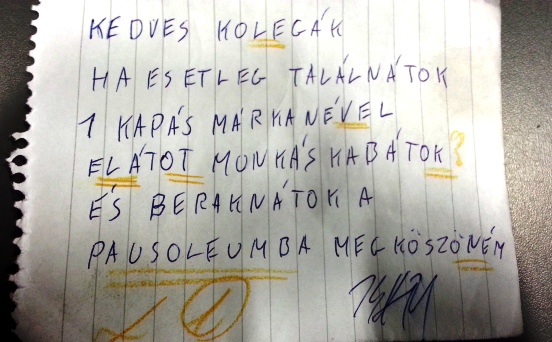 KEDVES KOLEGÁK
HA ESETLEG TALÁLNÁTOK
1 KAPÁS MÁRKANÉVEL
ELÁTOT MUNKÁS KABÁTOK?
ÉS BERAKNÁTOK A
PAUSOLEUMBA MEGKÖSZÖNÉM
1